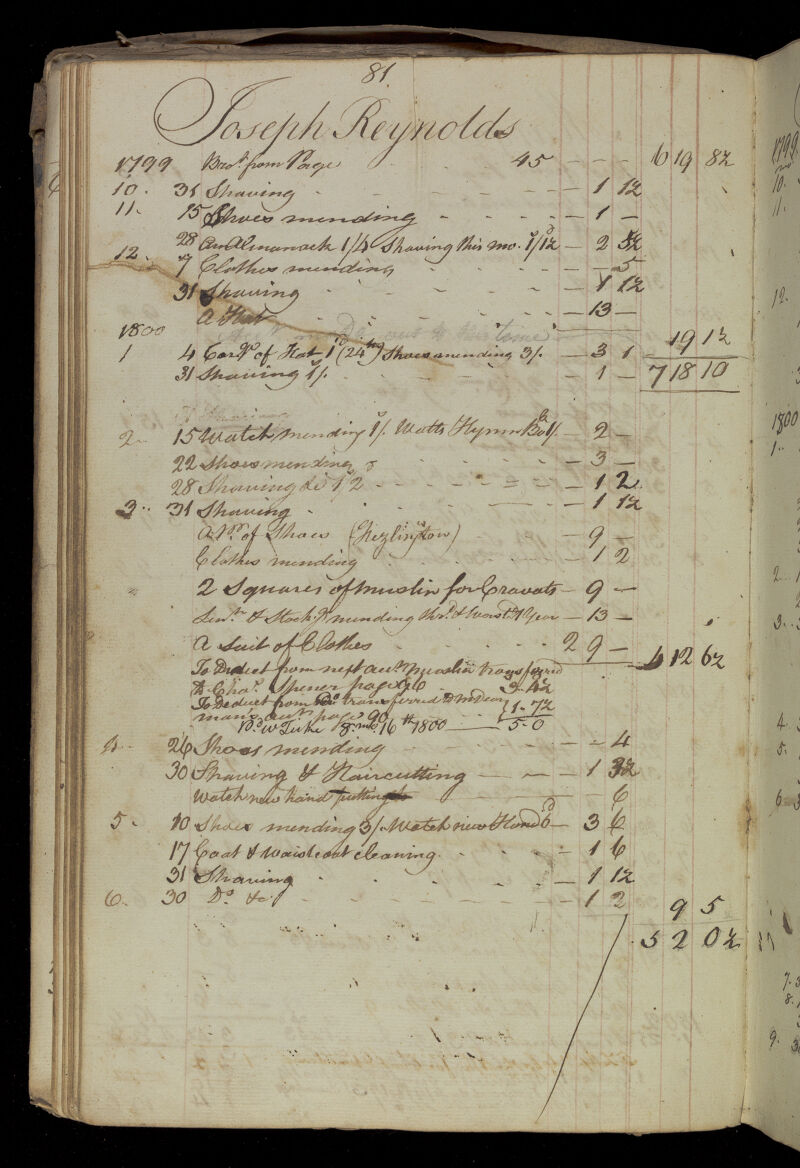 81
Joseph Reynolds
1799 Bro.t from Page 45 - - - 6 19 8½
10. 31 Shaving - 1 1½
11. 15 Shoes mending - 1 -
28 An Almanack 1/4 Shaving this mo. 1/1½ - 2 5½
12. 7 Clothes mending - - 5
31 Shaving - 1 1½
A Hat - 13 -
19 1½
1800
1 4 Car.ge of Hat 1.d (24th) Shoes mending 3/. - 3 1
31 Shaving 1/. - 1 - 7 18 10
2. 15 Watch mending 1/. Watts Hymn Bo 1/. - 2 -
22 Shoes mending - 3 -
28 Shaving &c 1/2 - 1 2
3.. 31 Shaving - 1 1½
A P.r of Shoes (Hezlington) - 9 -
Clothes mending - 1 2
2 Squares of muslin for Cravats - 9 -
& Stock.g mending - 13 -
A Suit of Clothes 2 9 -
4 12 6½
To Deduct from next acct Muslin transferred
to Cha.s Spener page 96 3.4½
To Deduct from Do. transferred to
mans acct page 90 1.7½
P.d W Tuke 8.mo 16th 1800 5.0
26 Shoes mending - - 4
30 Shaving & Haircutting - 1 3½
Watch new hand putting to 6
5. 10 Shoes mending 3/. Watch new Hand 6d - 3 6
17 Coat & Waistcoat cleaning - 1 6
31 Shaving - 1 1½
6. 30 Do. &c - 1 2
9 5
5 2 0½
1799
10.
11.
12.
1800
1..
2..
3..
4.
5.
6
7.
8.
9.